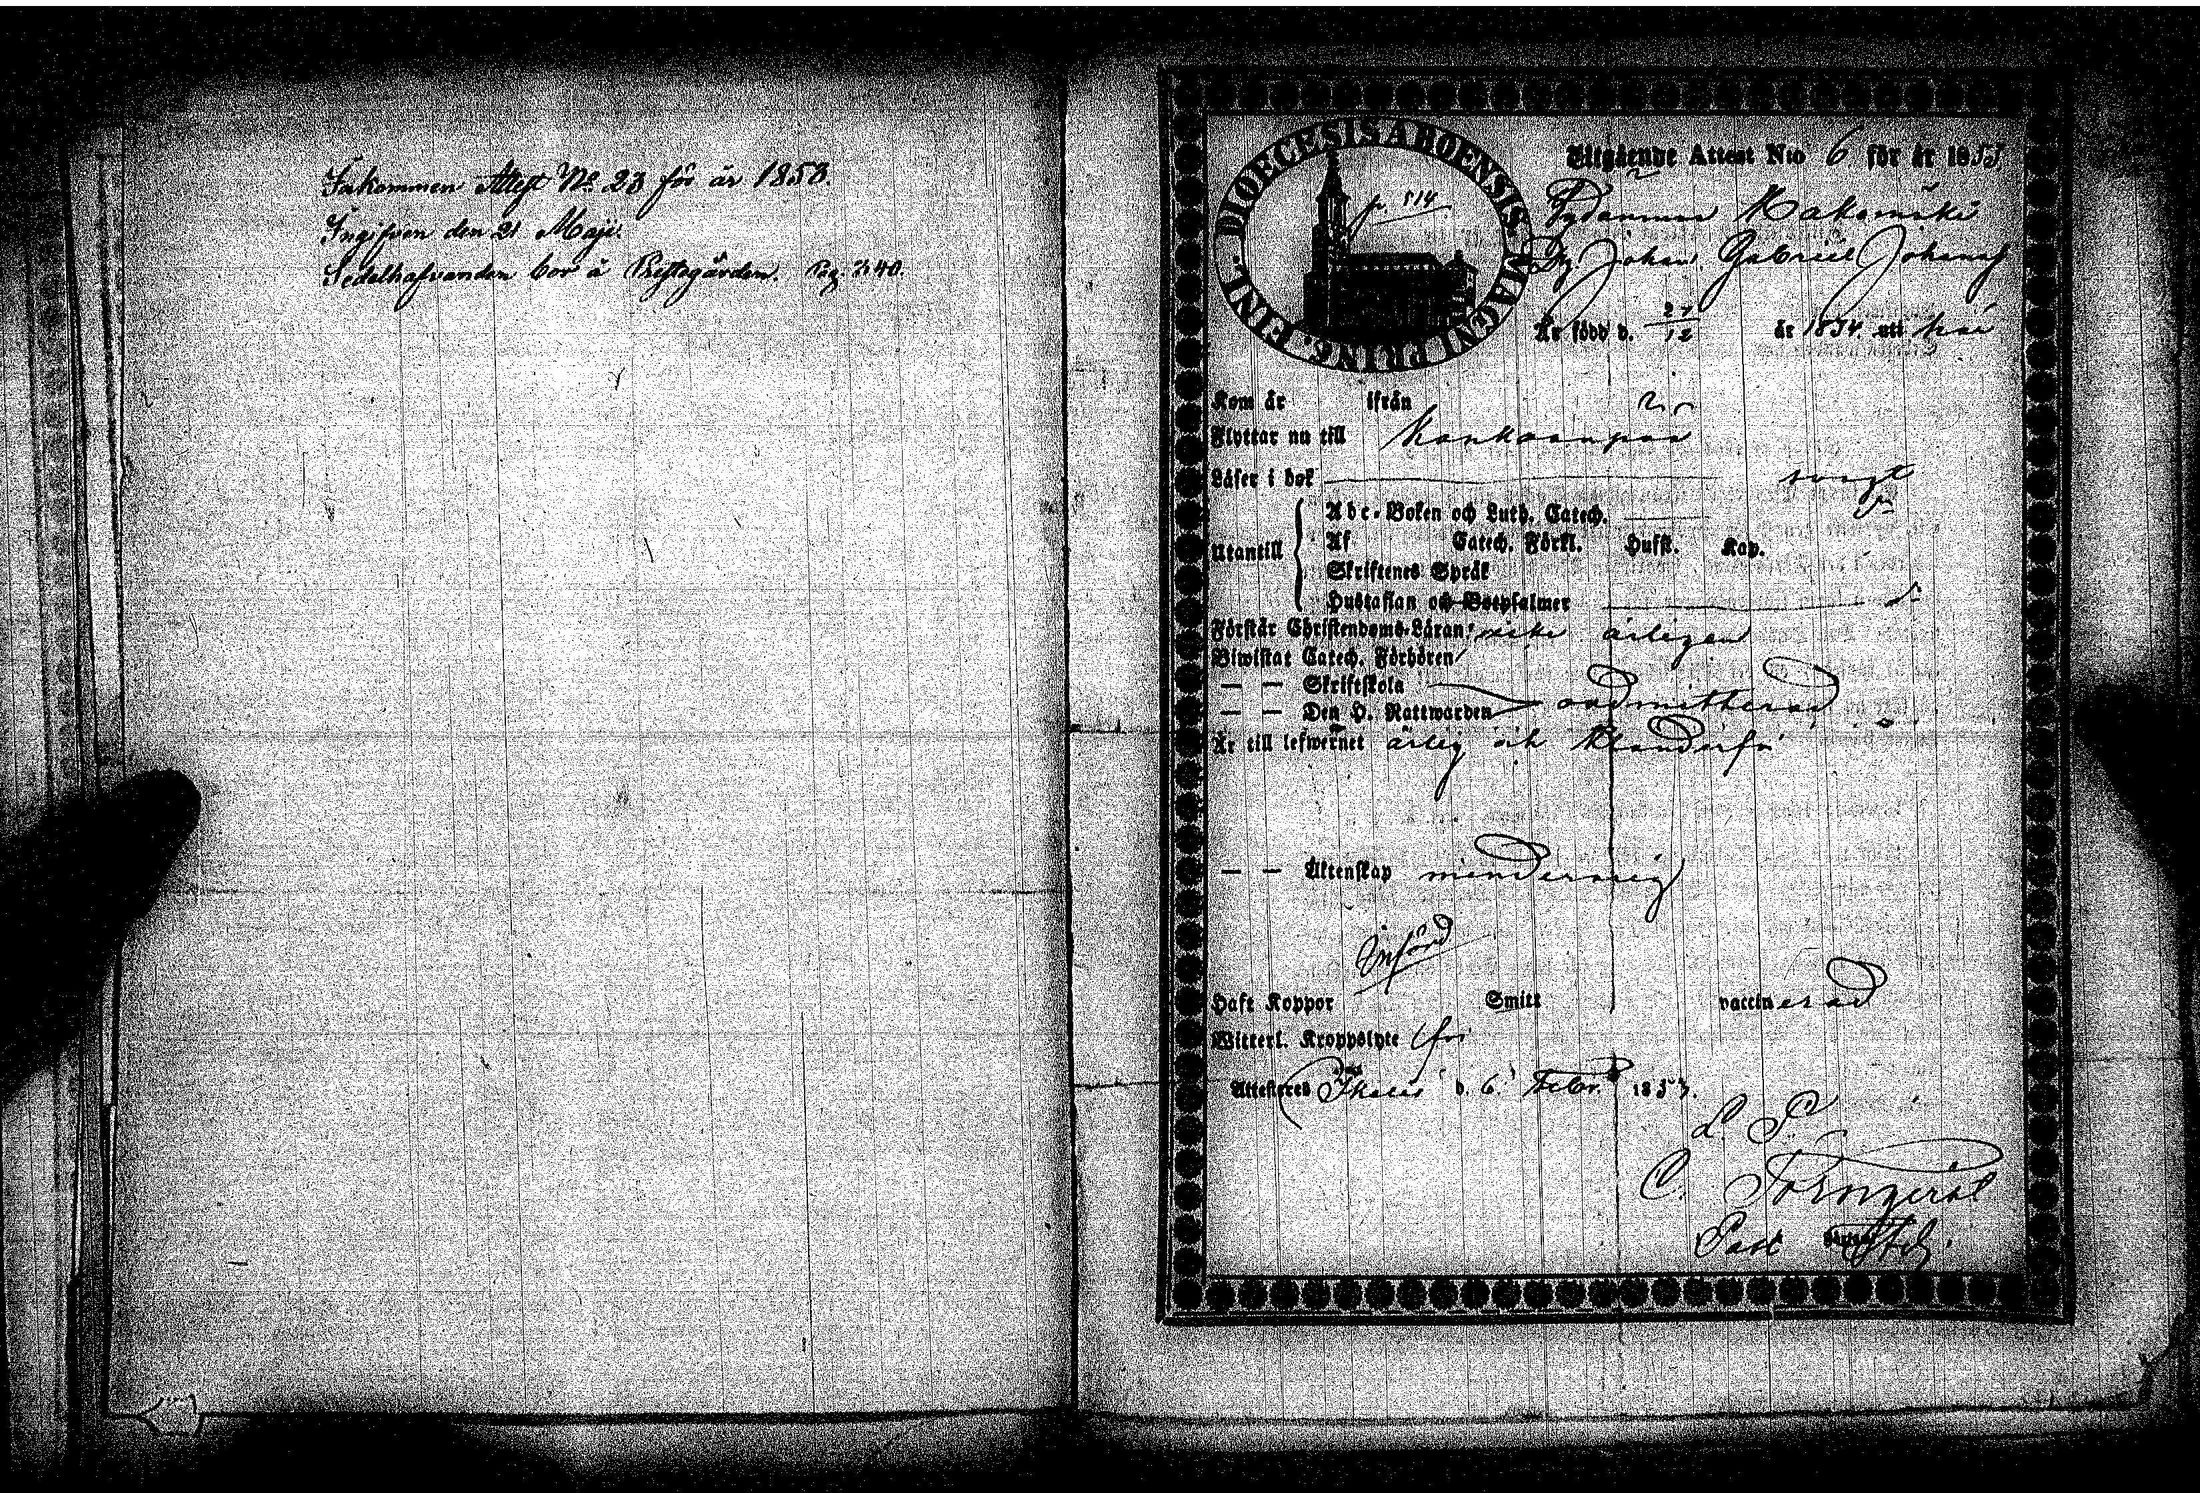 Inkommen Attest No 23 för år 1853.
Ingifven den 21 Maji.
Sedelhafvanden bor å Prestagården. Pag. 340.
DIOECESIS ABOENSIS. MAGNI PRINC. FINL.
p 514
Utgående Attest Nro 6 för år 1853.
Johan Gabriel
År född d. 27/12 år 1834 uti här
Kom år ifrån
Flyttar nu till Kankaanpää
Läser i bok svagt
Utantill
Abc-Boken och Luth. Catech.
Af Catech. Förkl. Hufst. Kap.
Skriftenes Språk
Hustaflan och Botpsalmer
Förstår Christendoms-Läran
Biwistat Catech. Förhören
— — Skriftskola
— — Den H. Nattwarden admitterad
Är till lefwernet ärlig och klanderfri
— — Äktenskap minderårig
Införd
Haft Koppor Smitt vaccinerad
Witterl. Kroppslyte fri
Attesteras Ikalis d. 6 Febr. 1853.